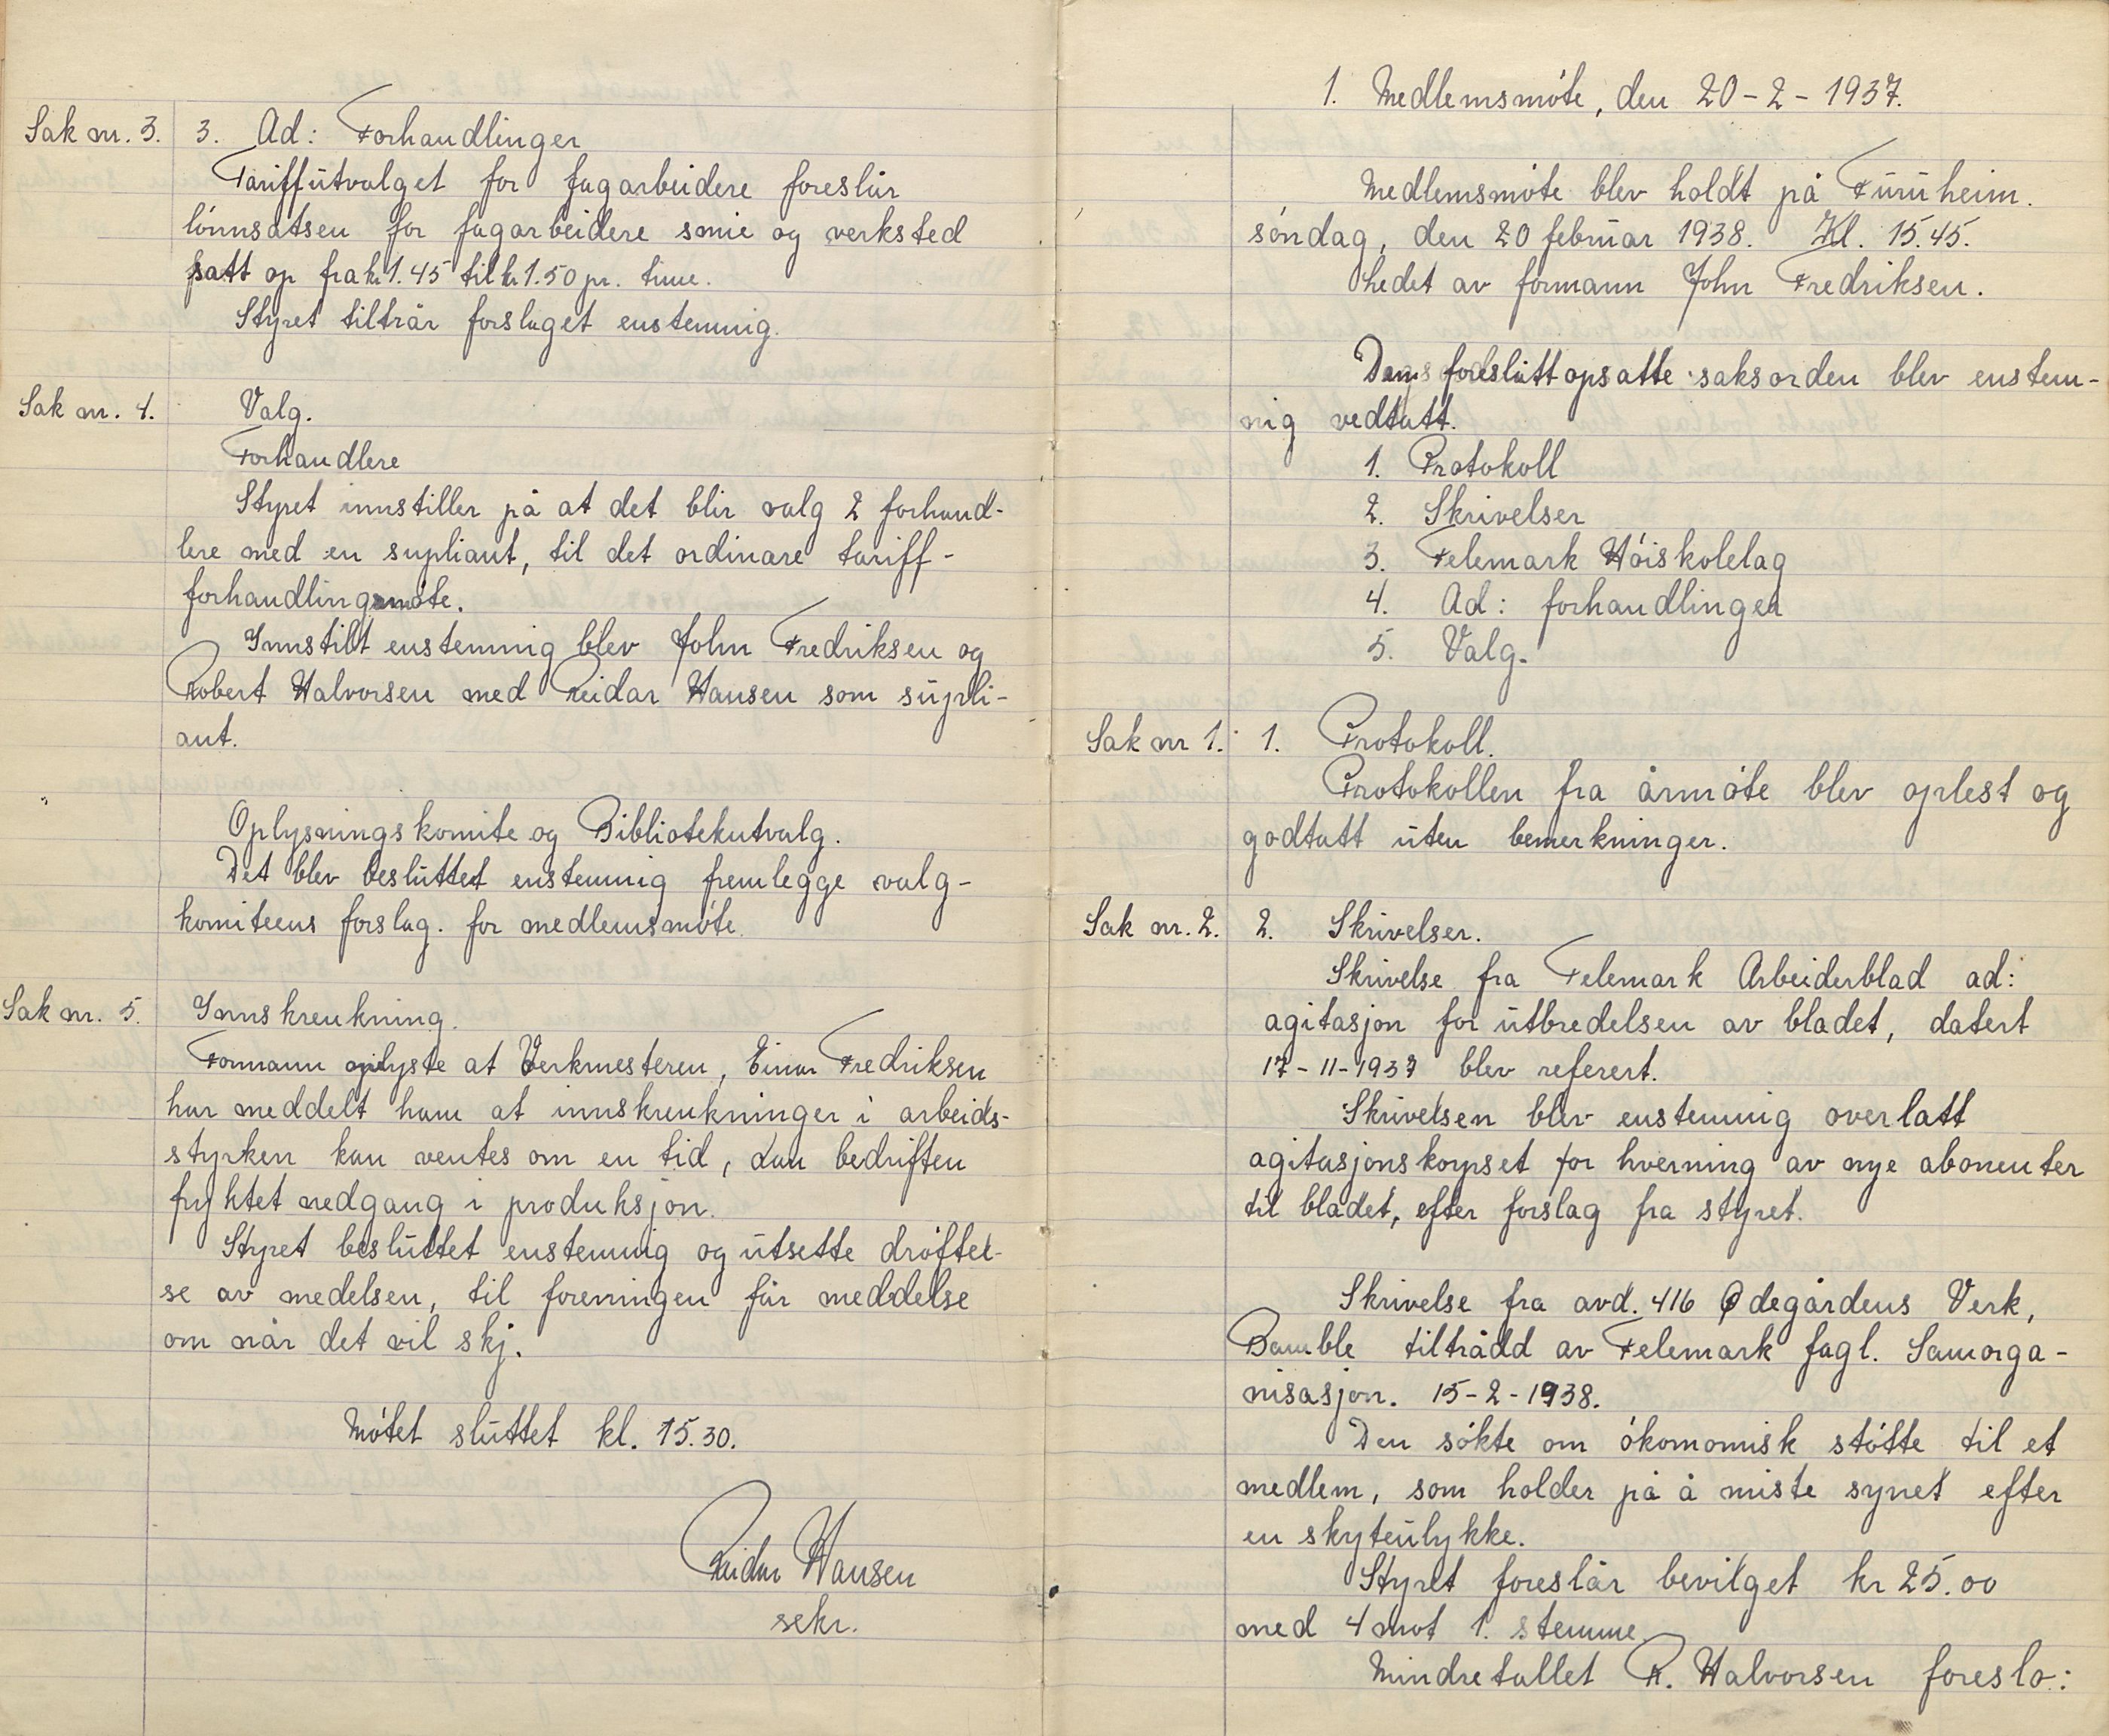 Sak nr. 3.
3. Ad: Forhandlinger
Tariffutvalget for fagarbeidere foreslår
lønnsatsen for fagarbeidere smie og verksted
satt op fra kr 1.45 til kr 1.50 pr. time.
Styret tiltrår forslaget enstemmig.
Sak nr. 4.
Valg.
Forhandlere
Styret innstiller på at det blir valg 2 forhand-
lere med en supliant, til det ordinære tariff-
forhandlingsmøte.
Innstilt enstemmig blev John Fredriksen og
Robert Halvorsen med Reidar Hansen som supli-
ant.
Oplysningskomite og Bibliotekutvalg.
Det blev besluttet enstemmig fremlegge valg-
komiteens forslag. for medlemsmøte
Sak nr. 5.
Innskrenkning.
Formann oplyste at Verkmesteren, Einar Fredriksen
har meddelt ham at innskrenkninger i arbeids-
styrken kan ventes om en tid, dan bedriften
fryktet nedgang i produksjon.
Styret besluttet enstemmig og utsette drøftel-
se av medelsen, til foreningen får meddelse
om når det vil skj.
Møtet sluttet kl. 15.30.
Reidar Hansen
sekr.
1. Medlemsmøte, den 20-2-1937.
Medlemsmøte blev holdt på Furuheim.
søndag, den 20 februar 1938. Kl. 15.45.
Ledet av formann John Fredriksen.
foreslått opsatte saksorden blev enstem-
mig vedtatt.
1. Protokoll
2. Skrivelser
3. Telemark Høiskolelag
4. Ad: forhandlinger
5. Valg.
Sak nr 1.
1. Protokoll.
Protokollen fra årmøte blev oplest og
godtatt uten bemerkninger.
Sak nr. 2.
2. Skrivelser.
Skrivelse fra Telemark Arbeiderblad ad:
agitasjon for utbredelsen av bladet, datert
17-11-1937 blev referert.
Skrivelsen blev enstemmig overlatt
agitasjonskorpset for hverning av nye abonenter
til bladet, efter forslag fra styret.
Skrivelse fra avd. 416 Ødegårdens Verk,
Bamble tiltrådd av Telemark fagl. Samorga-
nisasjon. 15-2-1938.
Den søkte om økomomisk støtte til et
medlem, som holder på å miste synet efter
en skyteulykke.
Styret foreslår bevilget kr 25.00
med 4 mot 1. stemme.
Mindretallet R. Halvorsen foreslo: